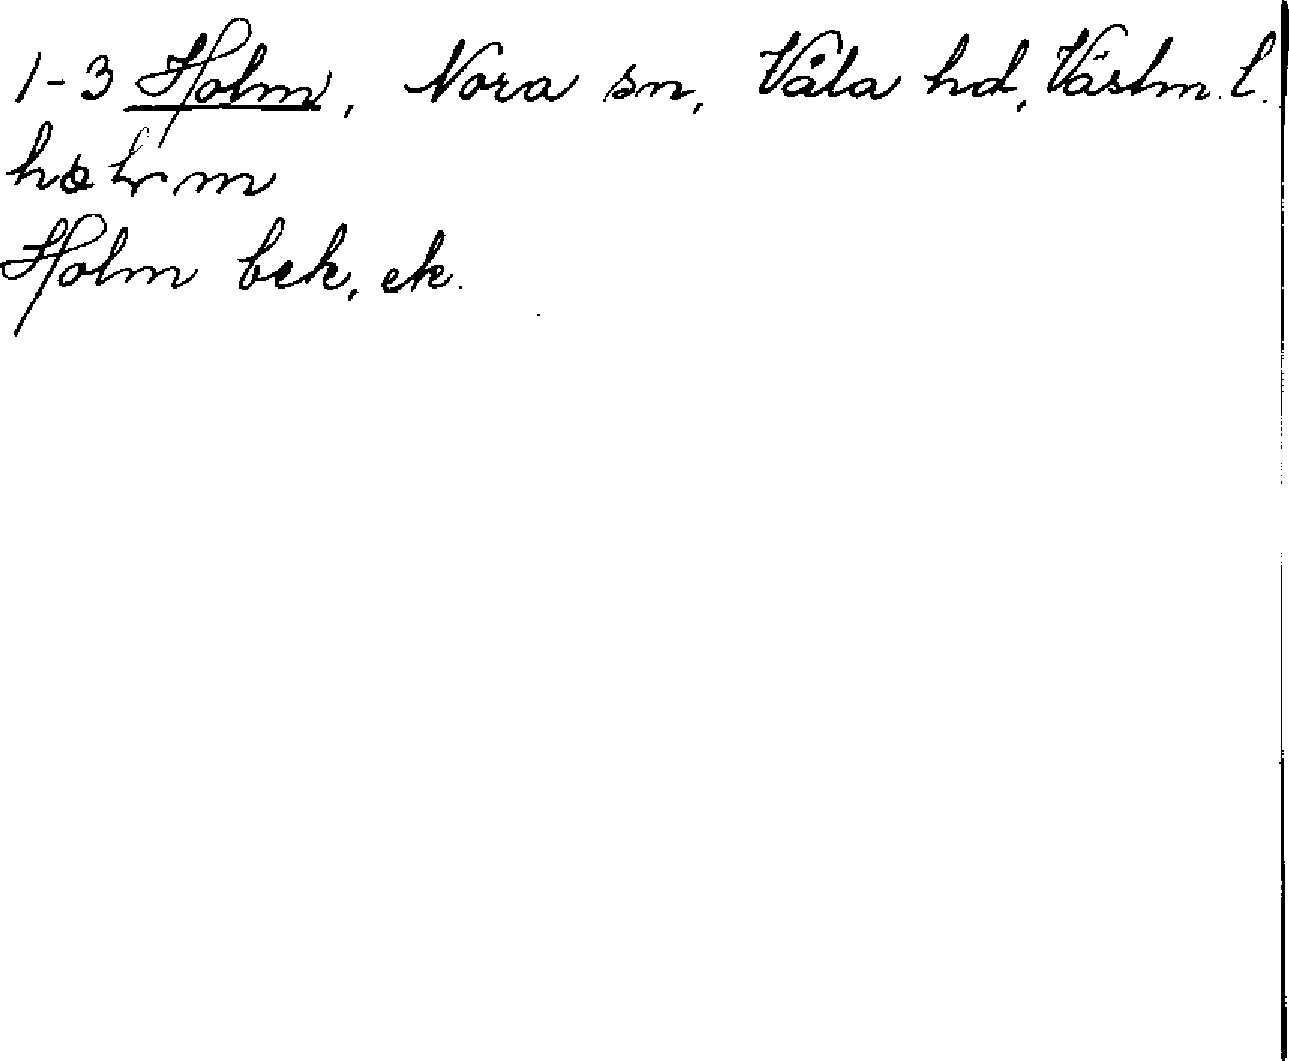 1-3 Holm, Nora sn, Våla hd, Västm. l.
Holm bek, ek.